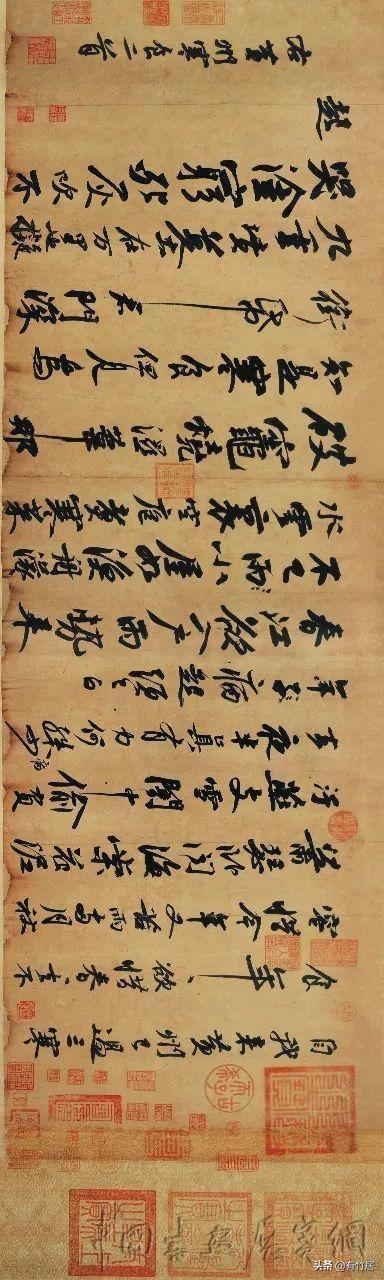 自我来黄州已過三寒
食年年欲惜春春去不
容惜今年又苦雨兩月秋
蕭瑟卧聞海棠花泥
汙燕支雪闇中偷負
去夜半真有力何殊病少
年子病起頭已白
春江欲入户雨勢来
不已雨小屋如漁舟濛濛
水雲裏空庖煮寒菜
破竈燒濕葦那
知是寒食但見烏
銜帋君門深
九重墳墓在万里也擬
哭塗窮死灰吹不
起
右黄州寒食二首
头条 @有竹居